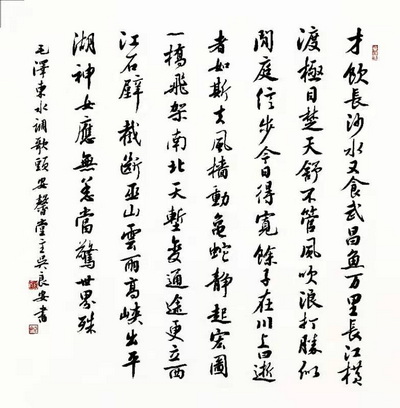 才飲長沙水又食武昌魚万里長江橫
渡極目楚天舒不管風吹浪打勝似
閒庭信步今日得寬餘子在川上曰逝
者如斯夫風檣動龜蛇靜起宏圖
一橋飛架南北天塹變通途更立西
江石壁截斷巫山雲雨高峽出平
湖神女應無恙當驚世界殊
毛澤東水調歌頭安馨堂主吳良安書